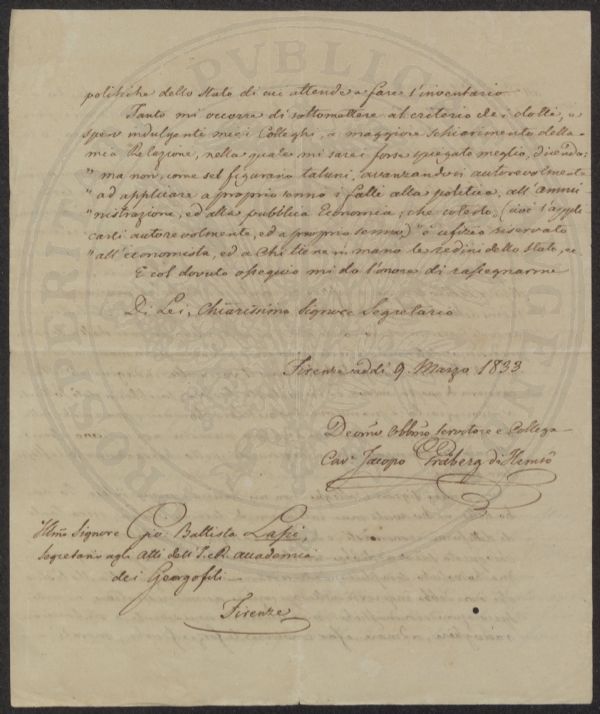 politiche dello Stato di cui attende a fare l'inventario.
Tanto mi occorre di sottomettere al criterio dei dotti, e
spero indulgenti miei Colleghi, a maggiore schiarimento della
mia Relazione, nella quale mi sarei forse spiegato meglio, dicendo:
" ma non, come sel figurano taluni, avanzandoci autorevolmente
" ad applicare a proprio senno i fatti alla politica, all' ammi
" nistrazione, ed alla pubblica Economia; che codesto, (cioè l'appli
carli autorevolmente, ed a proprio senno) " è ufizio riservato
" all'economista, ed a chi tiene in mano le redini dello Stato, ec.
E col dovuto ossequio mi do l'onore di rassegnarmi
Di Lei, Chiarissimo Signore Segretario
Firenze addì 9. Marzo 1833
Devmo Obblmo servitore e Collega
Cav. Jacopo Gråberg di Hemsö
Illmo Signore Gio Battista Lapi,
Segretario agli Atti dell' I. e R. Accademia
dei Georgofili
Firenze
PROSPERITATI PUBLICAE AUGENDAE